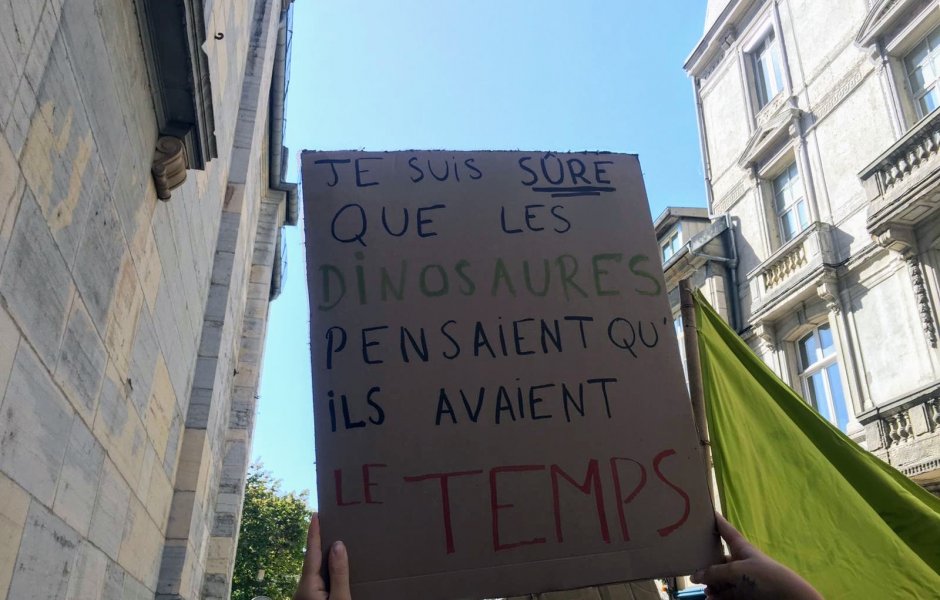 JE SUIS SÛRE
QUE LES
DINOSAURES
PENSAIENT QU'
ILS AVAIENT
LE TEMPS